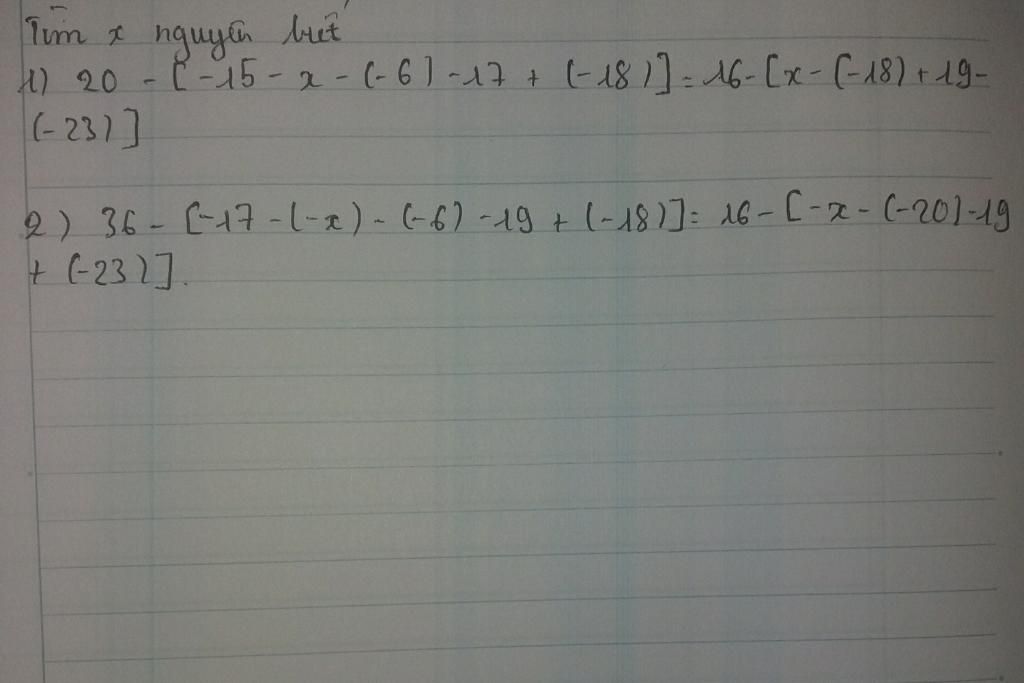 Tìm x nguyên biết
1) 20 - [-15 - x - (-6) -17 + (-18)] = 16 - [x - (-18) + 19 -
(-23)]
2) 36 - [-17 - (-x) - (-6) -19 + (-18)] = 16 - [-x - (-20) -19
+ (-23)].